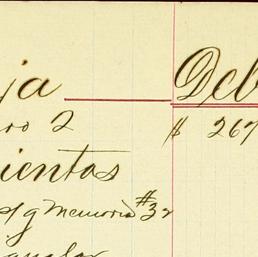 ja Deb
ro 2 $ 267
ientas
s/g Memoria #32